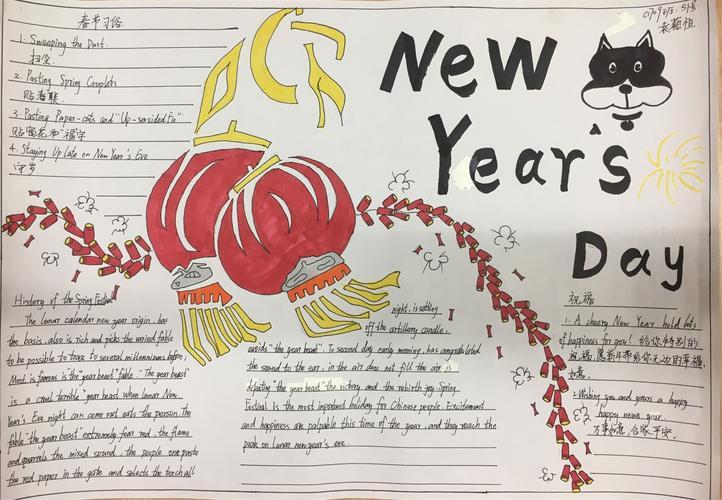 春节习俗
1. Sweeping the Dust.
扫尘.
2. Pasting Spring Couplets
贴春联.
3. Pasting Paper-cuts and "Up-sesided Fu"
贴窗花和"福"字
4. Staying Up late on New Year's Eve
守岁
New
Year's
Day
History of the Spring Festival
The lunar calendar new year origin, has
the basis, also is rich and picks the varied fable
to be possible to trace to several millenniums before,
Most is famous is "the year beast" fable. "The year beast"
is a cruel terrible year beast when lunar New
Year's Eve night can come out eats the person. The
fable "the year beast" extremely fear red, the flame
and quarrels the mixed sound, the people one paste
the red paper in the gate and selects the torch all
night, is setting
off the artillery candle,
avoids "the year beast". To second day early morning, has
the sound to the ear, in the air does not fill the air is
defeating "the year beast" the victory and the rebirth joy Spring
Festival is the most important holiday for Chinese people. Excitement
and happiness are palpable this time of the year, and they reach the
peak on lunar new year's eve.
祝福
1. A cheery New Year hold lots
of happiness for you! 给你特别的
祝福,愿新年带给你无边的幸福,
如意.
2. Wishing you and yours a happy
happy new year.
万事如意,合家平安.